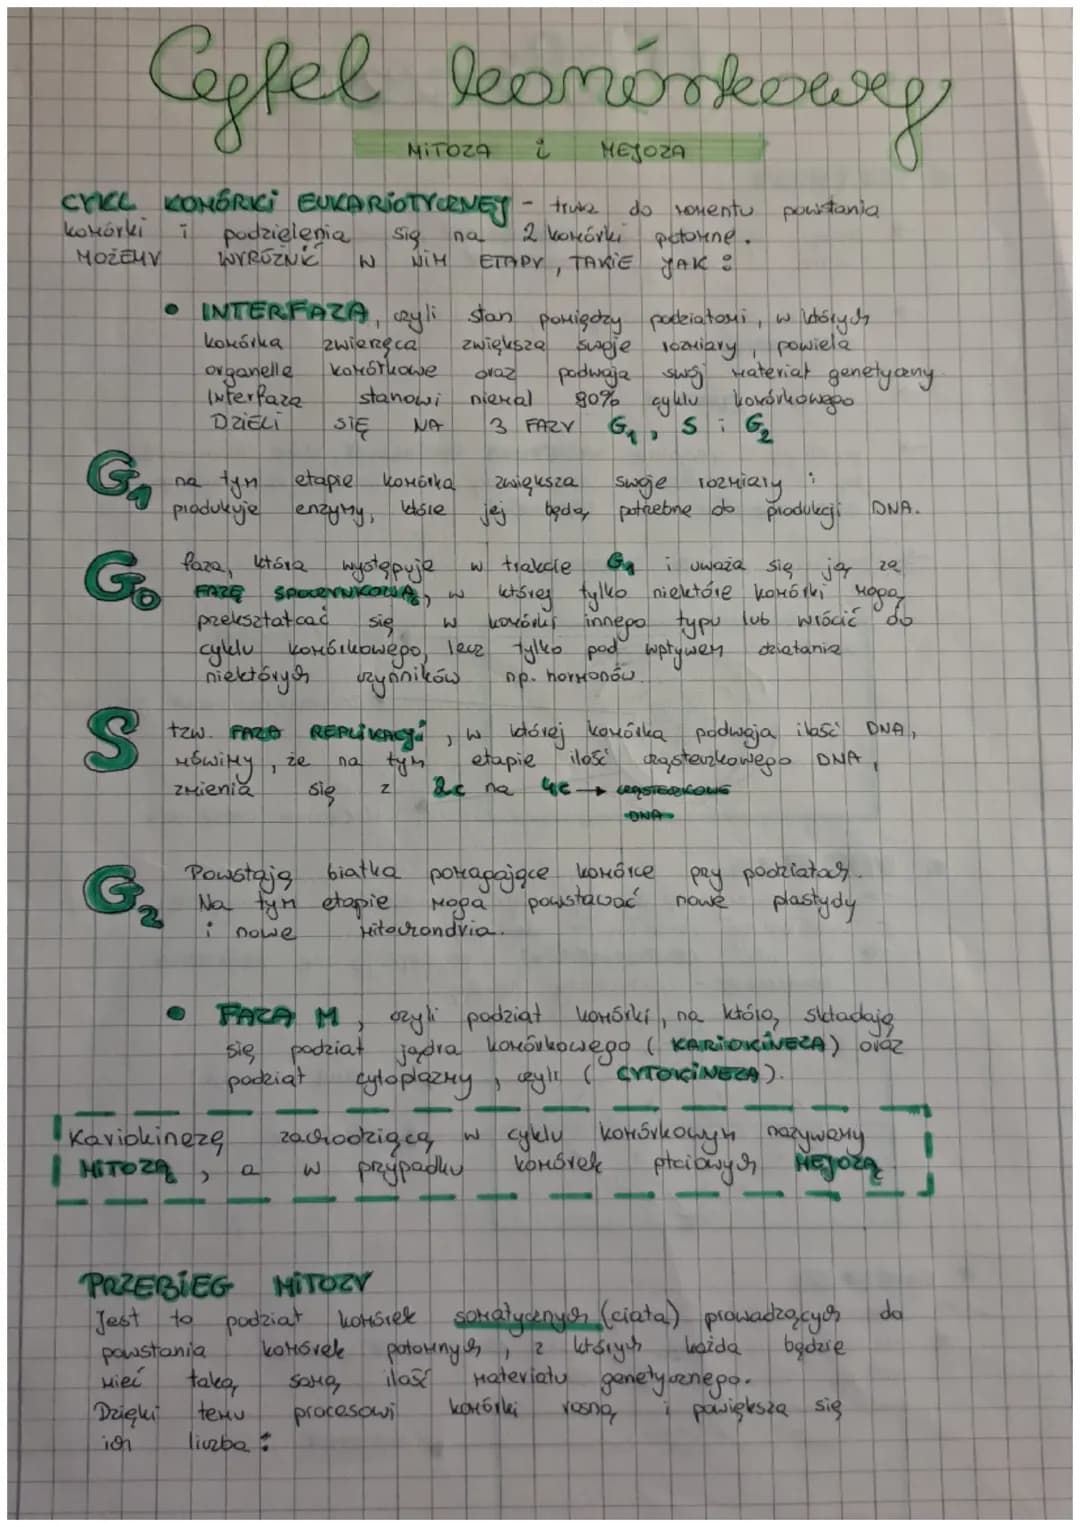 Cykl komórkowy
MITOZA i MEJOZA
CYKL KOMÓRKI EUKARIOTYCZNEJ - trwa do momentu powstania
komórki i podzielenia się na 2 komórki potomne.
MOŻEMY WYRÓŻNIĆ W NIM ETAPY, TAKIE JAK:
• INTERFAZA, czyli stan pomiędzy podziałami, w których
komórka zwierzęca zwiększa swoje rozmiary, powiela
organelle komórkowe oraz podwaja swój materiał genetyczny
Interfaza stanowi niemal 90% cyklu komórkowego
DZIELI SIĘ NA 3 FAZY G1, S i G2
G1 na tym etapie komórka zwiększa swoje rozmiary i
produkuje enzymy, które jej będą potrzebne do produkcji DNA.
G0 faza, która występuje w trakcie G1 i uważa się ją za
FAZĘ SPOCZYNKOWĄ, w której tylko niektóre komórki mogą
przekształcać się w komórki innego typu lub wrócić do
cyklu komórkowego, lecz tylko pod wpływem działania
niektórych czynników np. hormonów.
S tzw. FAZA REPLIKACJI, w której komórka podwaja ilość DNA,
mówimy, że na tym etapie ilość cząsteczkowego DNA,
zmienia się z 2c na 4c → CZĄSTECZKOWE
DNA
G2 Powstają białka pomagające komórce przy podziałach.
Na tym etapie mogą powstawać nowe plastydy
i nowe mitochondria.
• FAZA M, czyli podział komórki, na którą składają
się podział jądra komórkowego (KARIOKINEZA) oraz
podział cytoplazmy, czyli (CYTOKINEZA).
Kariokinezę zachodzącą w cyklu komórkowym nazywamy
MITOZĄ, a w przypadku komórek płciowych MEJOZĄ
PRZEBIEG MITOZY
Jest to podział komórek somatycznych (ciała) prowadzących do
powstania komórek potomnych, z których każda będzie
mieć taką samą ilość materiału genetycznego.
Dzięki temu procesowi komórki rosną i powiększa się
ich liczba: